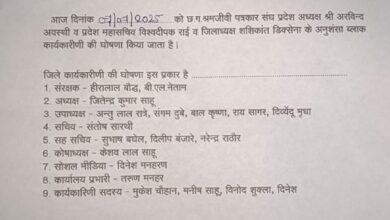 आज दिनांक 07/07/2025 को छ.ग.श्रमजीवी पत्रकार संघ प्रदेश अध्यक्ष श्री अरविन्द
अवस्थी व प्रदेश महासचिव विश्वदीपक राई व जिलाध्यक्ष शशिकांत डिक्सेना के अनुशंसा ब्लाक
कार्यकारीणी की घोषणा किया जाता है।
जिले कार्यकारीणी की घोषणा इस प्रकार है
1. संरक्षक - हीरालाल बौद्ध, बी.एल.नेताम
2. अध्यक्ष - जितेन्द्र कुमार साहू
3. उपाध्यक्ष - अन्तु लाल रात्रे, संगम दुबे, बाल कृष्णा, राय सागर, दिव्येंदू मृधा
4. सचिव - संतोष सारथी
5. सह सचिव - सुभाष बघेल, दिलीप बंजारे, नरेन्द्र राठौर
6. कोषाध्यक्ष - केशव लाल साहू
7. सोशल मीडिया - दिनेश मनहरण
8. कार्यालय प्रभारी - तरुण मनहर
9. कार्यकारिणी सदस्य - मुकेश चौहान, मनीष साहू, विनोद शुक्ला, दिनेश